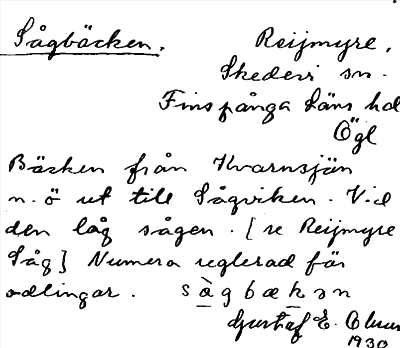 Sågbäcken. Reijmyre,
Skedevi sn.
Finspånga läns hd
Ögl
Bäcken från Kvarnsjön
n.ö ut till Sågviken. Vid
den låg sågen. [se Reijmyre
Såg] Numera reglerad för
odlingar. sàgbækən
Gustaf E.
1930